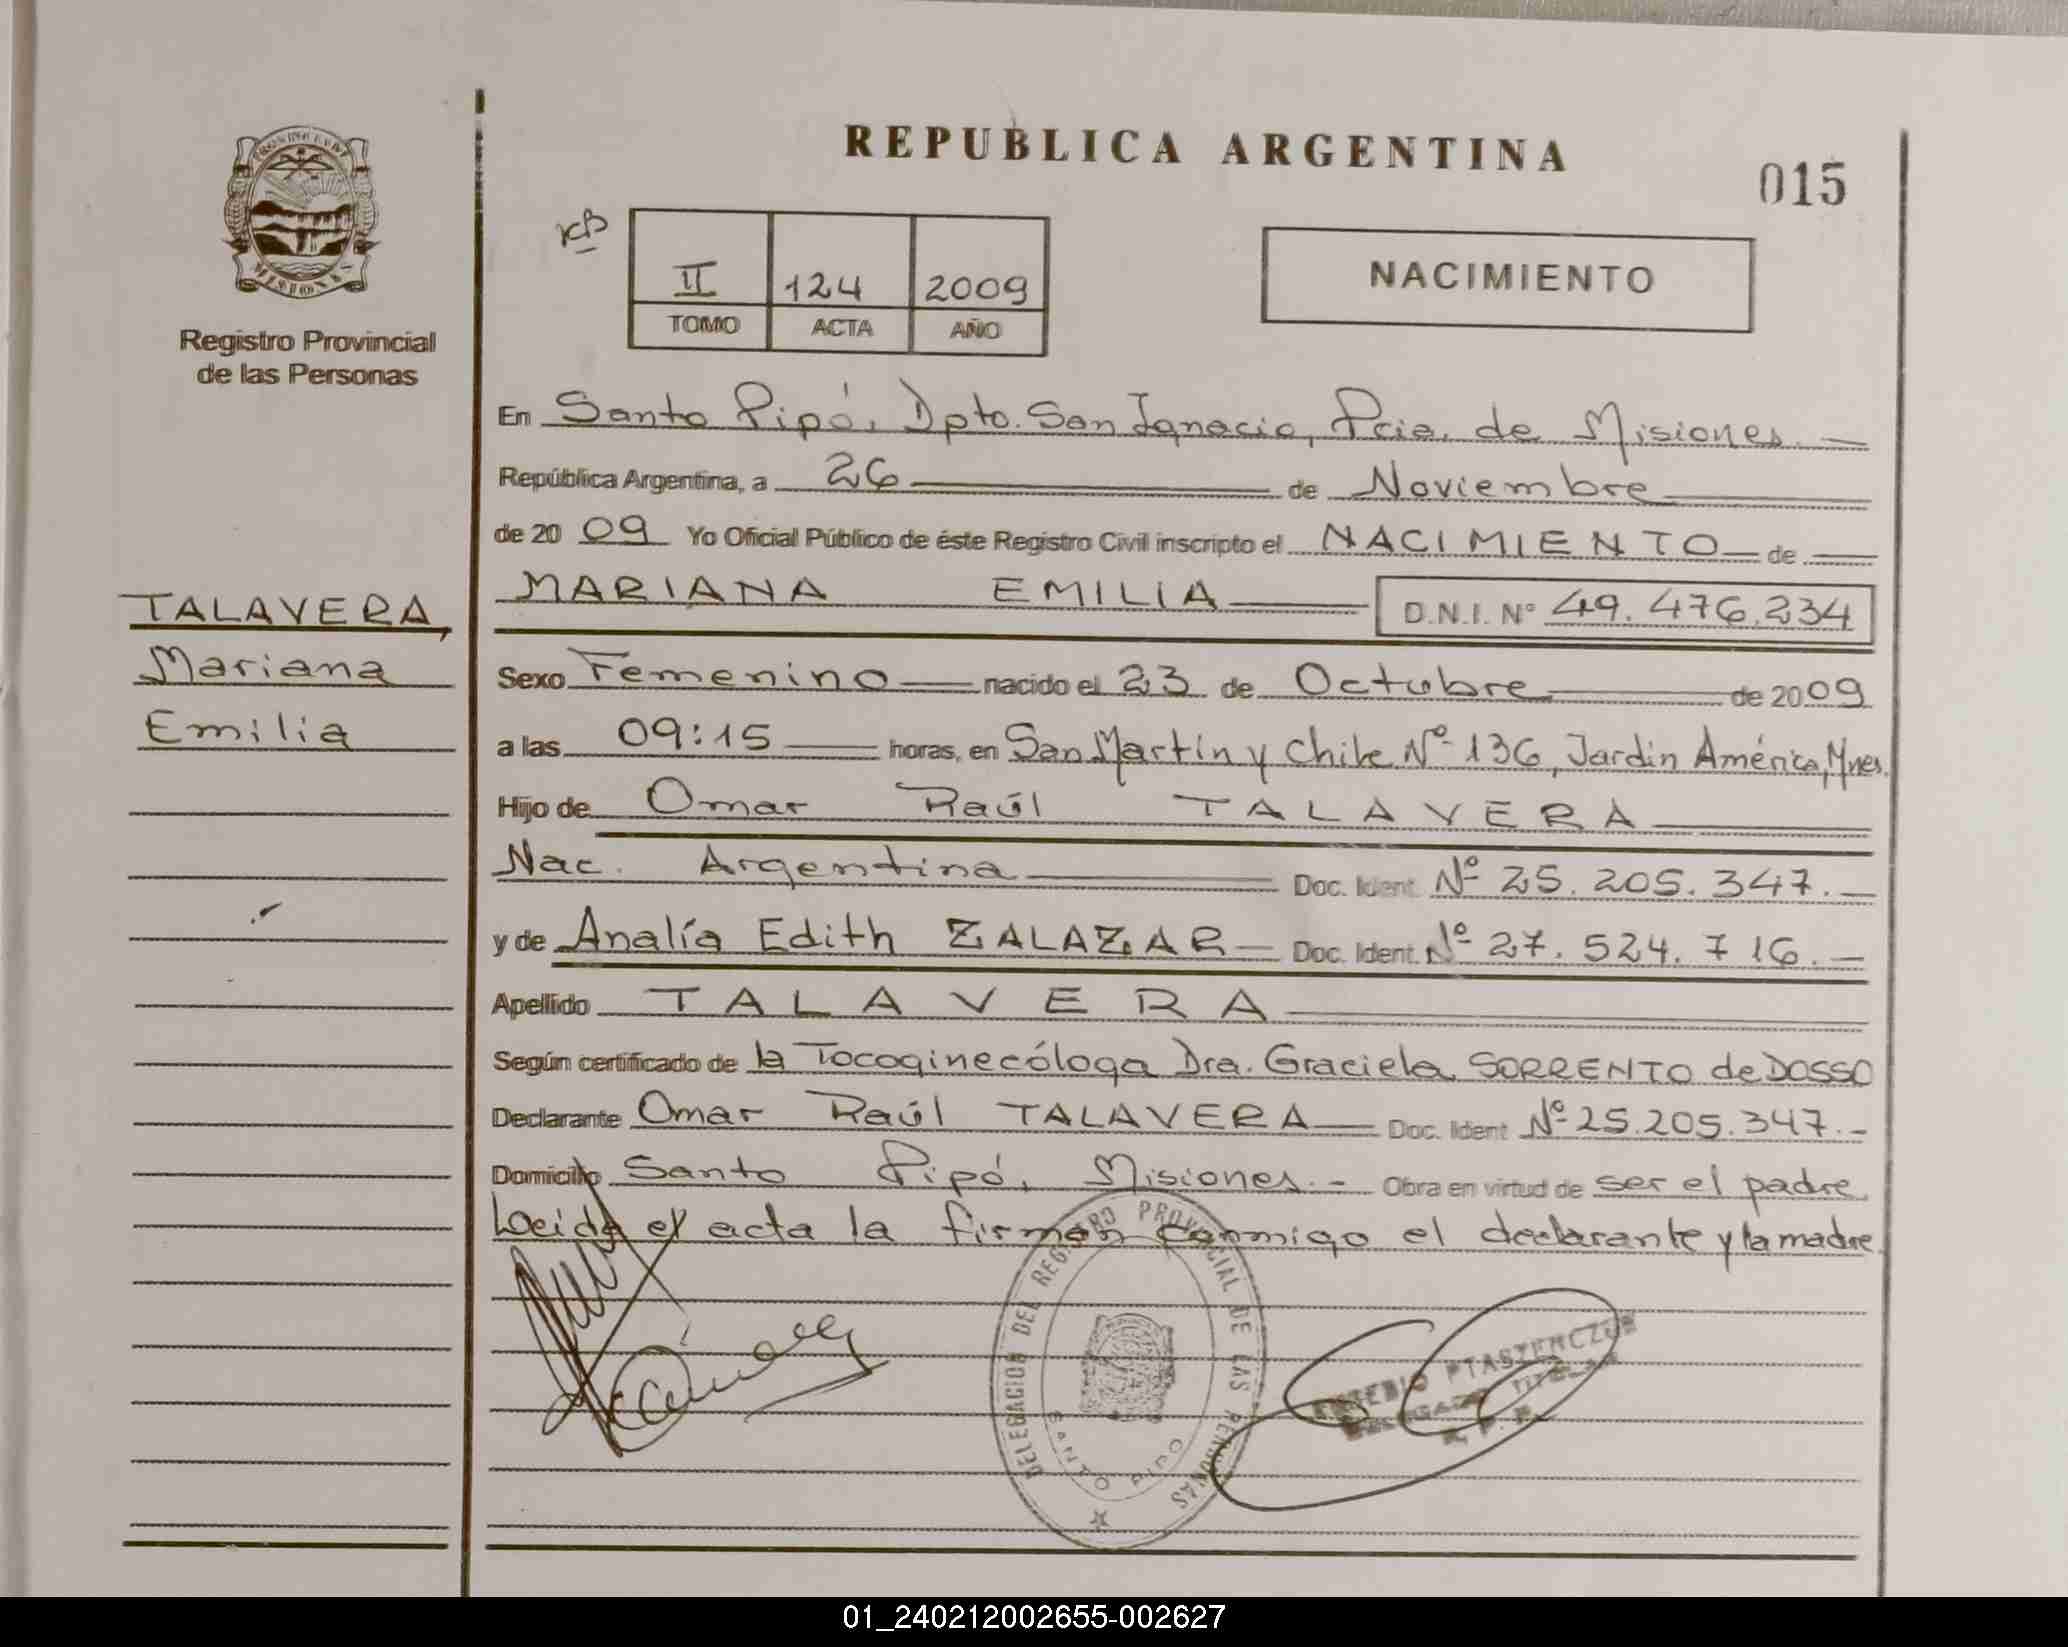 REPUBLICA ARGENTINA
015
PROVINCIA DE MISIONES
Registro Provincial
de las Personas
KB
II 124 2009
TOMO ACTA AÑO
NACIMIENTO
En Santo Pipó, Dpto. San Ignacio, Pcia. de Misiones.-
República Argentina, a 26 de Noviembre
de 2009 Yo Oficial Público de éste Registro Civil inscripto el NACIMIENTO de
MARIANA EMILIA D.N.I. Nº 49.476.234
TALAVERA,
Mariana
Emilia
Sexo Femenino nacido el 23 de Octubre de 2009
a las 09:15 horas, en San Martín y Chile Nº 136, Jardín América, Mnes.
Hijo de Omar Raúl TALAVERA
Nac. Argentina Doc. Ident. Nº 25.205.347.-
y de Analía Edith ZALAZAR Doc. Ident. Nº 27.524.716.-
Apellido TALAVERA
Según certificado de la Tocoginecóloga Dra. Graciela SORRENTO de DOSSO
Declarante Omar Raúl TALAVERA Doc. Ident Nº 25.205.347.-
Domicilio Santo Pipó, Misiones.- Obra en virtud de ser el padre
Leída el acta la firman conmigo el declarante y la madre
DELEGACION DEL REGISTRO PROVINCIAL DE LAS PERSONAS
SANTO PIPO
DELEGADO TITULAR
R. P. P.
01_240212002655-002627